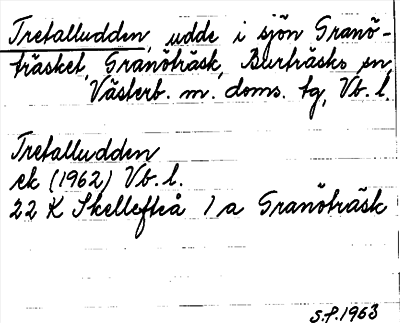 Trefalludden, udde i sjön Granö-
träsket, Granöträsk, Burträsks sn,
Västerb. m. doms. tg, Vb. l.
Trefalludden
ek (1962) Vb. l.
22 K Skellefteå 1 a Granöträsk
S.f. 1963